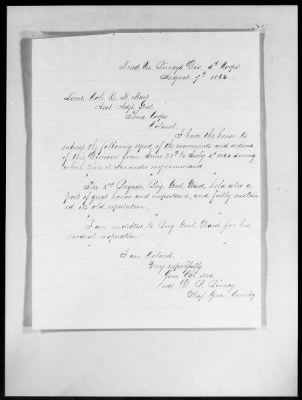 Head Qrs Birney's Div. 3d Corps
August 7th 1863
Lieut. Col. O. H. Hart
Asst. Adjt. Genl.
Third Corps
Colonel:
I have the honor to
submit the following report of the movements and actions
of this Division from June 28th to July 9th 1863 during
which time it was under my command.
" " "
The 2nd Brigade, Brig. Genl. Ward, held also a
post of great honor and importance, and fully sustain-
ed its old reputation.
" " "
I am indebted to Brig. Genl. Ward for his
cordial cooperation.
" " "
I am Colonel
Very respectfully
Your Obt. Serv.
D. B. Birney
Maj. Gen. Comdg